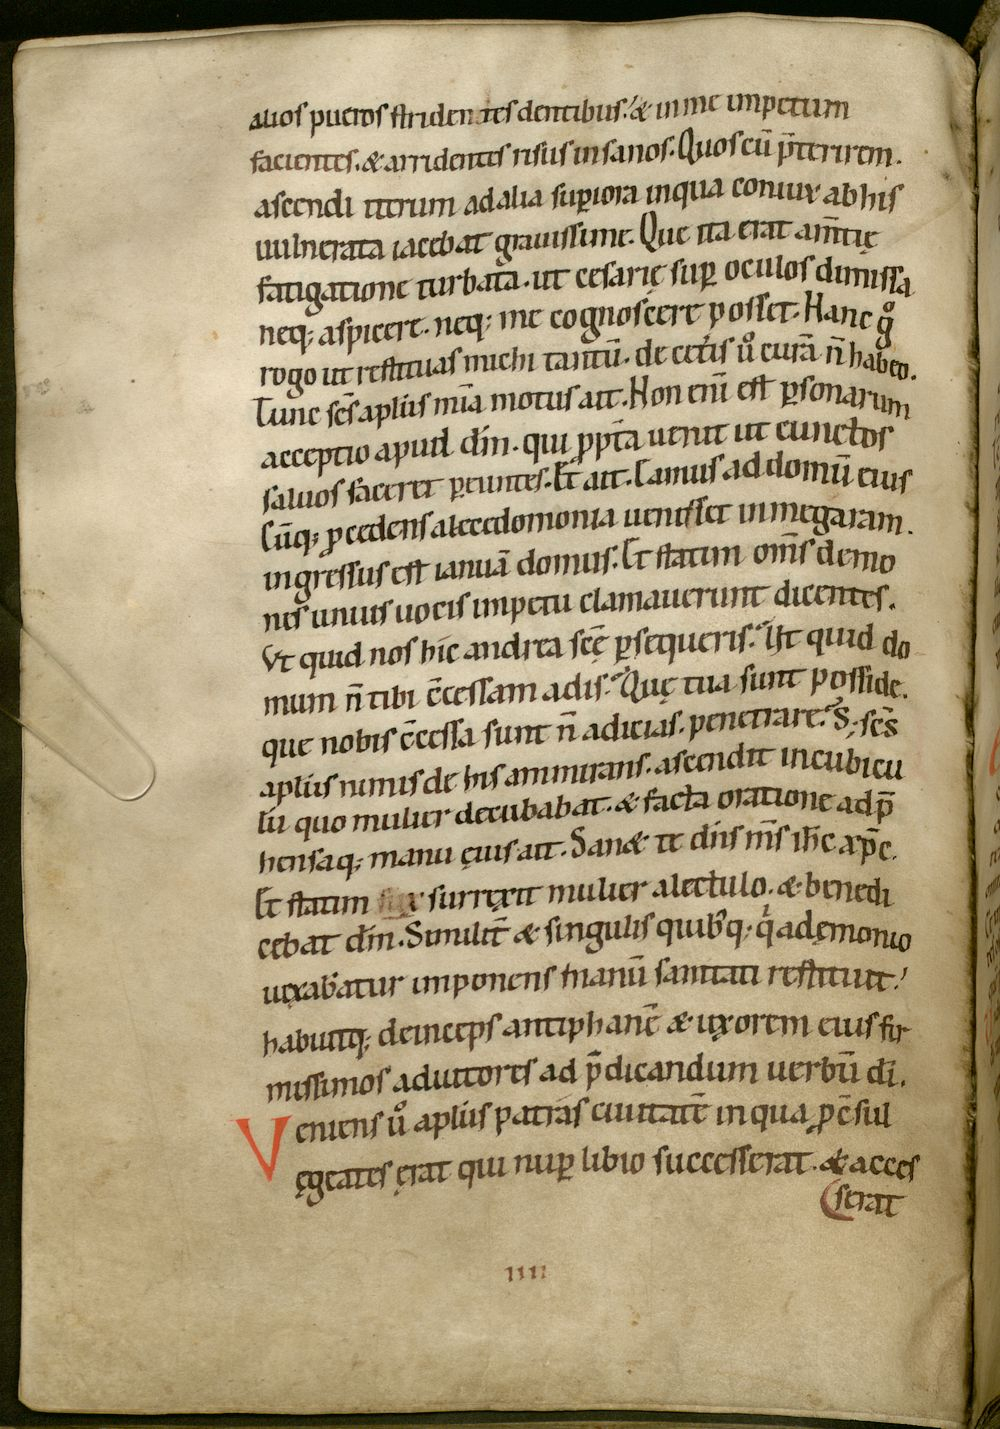 alios pueros stridentes dentibus. & in me impetum
facientes. & arridentes risus insanos. Quos cū p̄terirem.
ascendi iterum ad alia sup̱iora in qua coniux ab his
uulnerata iacebat grauissime. Que ita erat am̄tię
fatigatione turbata. ut cesarię sup̱ oculos dimissa
neq; aspicere. neq; me cognoscere posset. Hanc gͦ
rogo ut restituas michi tantū. de cet̄is uͦ curā n̄ habeo.
Tunc sc̄s apl̄us mīa motus ait. Non eni̅ est p̱sonarum
acceptio apud dm̄. qui ꝓpt̄a uenit ut cunctos
saluos faceret p̱euntes. Et ait. Eamus ad domū eius
Cūq; ꝓcedens a lecedomonia uenisset in megaram.
ingressus est ianuā domus. Et statim om̄s demo
nes unius uocis impetu clamauerunt dicentes.
Vt quid nos hic andrea sc̄ę p̱sequeris. Ut quid do
mum n̄ tibi c̄cessam adis. Quę tua sunt posside.
que nobis c̄cessa sunt n̄ adicias. penetrare. S; sc̄s
apl̄us nimis de his ammirans. ascendit in cubicu
lū quo mulier decubabat. & facta oratione adp̄
hensaq; manu ęius ait. San& te dn̄s m̄s ih̄c xp̄c.
Et statim surrexit mulier a lectulo. & benedi
cebat dm̄. Similit̄ & singulis quibq; qͥ a dęmonio
uexabatur imponens manū sanitati restituit.
habuitq; deinceps antiphanē & uxorem eius fir
missimos adiutores ad p̄dicandum uerbū dī.
Veniens uͦ apl̄us patras ciuitatē in qua ꝓc̄sul
ęgeates ęrat qui nup̱ libio successerat. & acces
serat
IIII